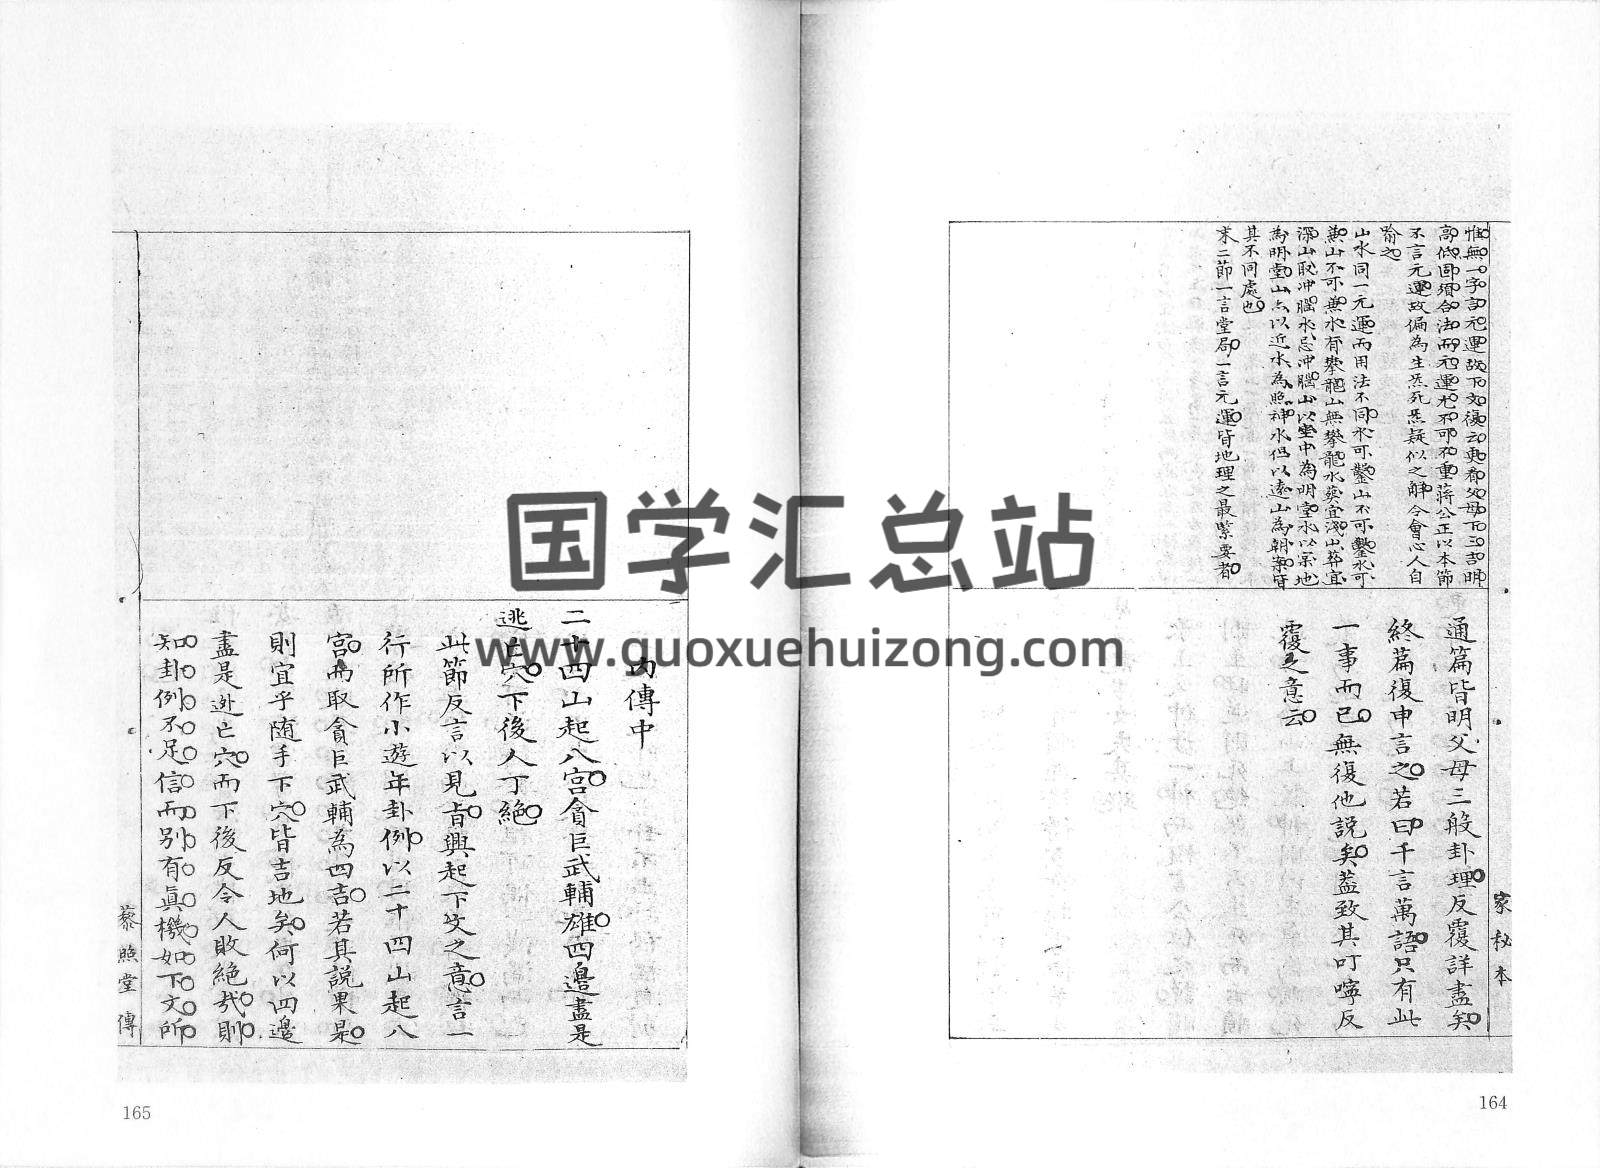 惟無一字言元運故下文復云更看父母下三吉明
高低固須合法而元運尤不可不重蔣公正以本節
不言元運故偏為生炁死炁疑似之解令會心人自
喻之
山水同一元運而用法不同水可鑿山不可鑿水可
兼山不可兼水有攀龍山無攀龍水葬宜淺山葬宜
深山取冲腦水忌冲腦山以堂中為明堂水以宗地
為明堂山以近水為照神水但以遠山為朝案皆
其不同處也
末二節一言堂局一言元運皆地理之最緊要者
通篇皆明父母三般卦理反覆詳盡矣
終篇復申言之若曰千言萬語只有此
一事而已無復他說矣蓋致其叮嚀反
覆之意云
家秘本
164
內傳中
二十四山起八宮貪巨武輔雄四邊盡是
逃亡穴下後人丁絕
此節反言以見旨興起下文之意言一
行所作小遊年卦例以二十四山起八
宮而取貪巨武輔為四吉若其說果是
則宜乎隨手下穴皆吉地矣何以四邊
盡是逃亡穴而下後反令人敗絕哉則
知卦例不足信而別有真機如下文所
藜照堂傳
165
国学汇总站
www.guoxuehuizong.com